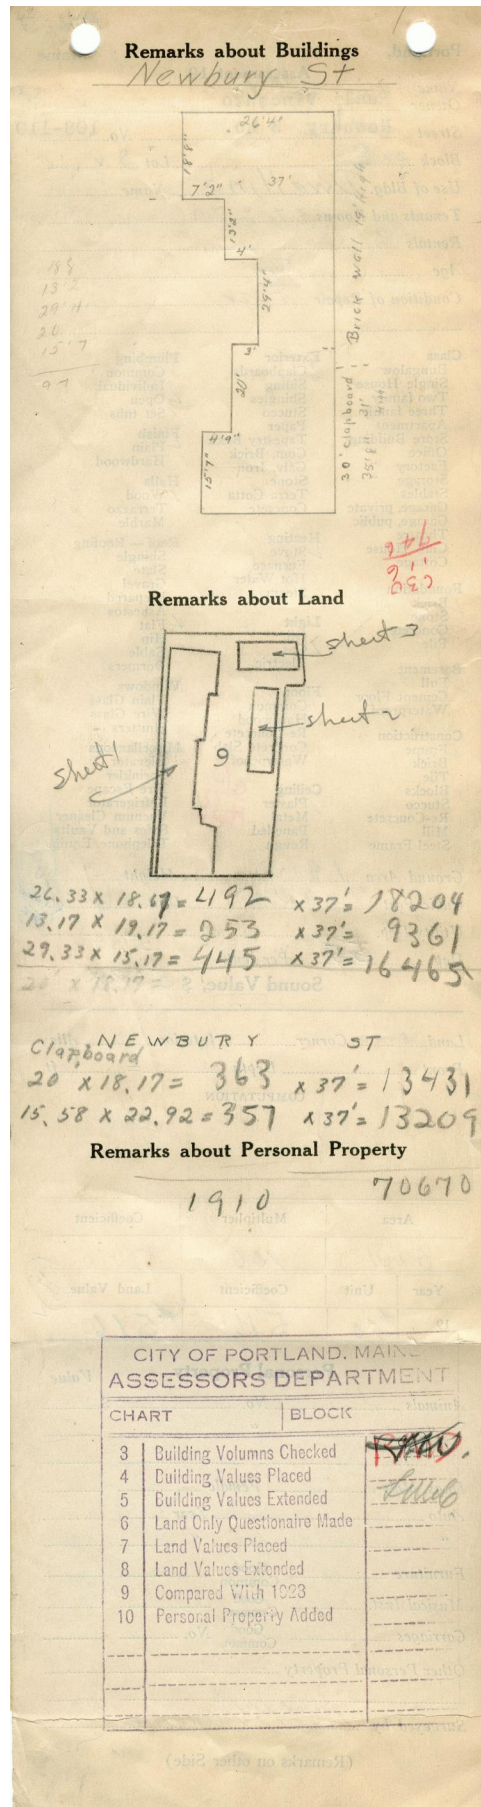 Remarks about Buildings
Newbury St
26'4"
18'8"
37'
7'2"
13'2"
4'
29'4"
Brick Wall 19' high
3'
20'
30' Clapboard
4'9"
15'7"
18 8
13' 2
29' 4
20
15' 7
97
Remarks about Land
sheet 3
sheet 2
9
sheet 1
26.33 x 18.67 = 492 x 37' = 18204
13.17 x 19.17 = 253 x 37' = 9361
29.33 x 15.17 = 445 x 37' = 16465
20' x 18.17 =
NEWBURY ST
Clapboard
20 x 18.17 = 363 x 37' = 13431
15.58 x 22.92 = 357 x 37' = 13209
Remarks about Personal Property
1910 70670
CITY OF PORTLAND, MAINE
ASSESSORS DEPARTMENT
CHART BLOCK
3 Building Volumns Checked
4 Building Values Placed
5 Building Values Extended
6 Land Only Questionaire Made
7 Land Values Placed
8 Land Values Extended
9 Compared With 1923
10 Personal Property Added